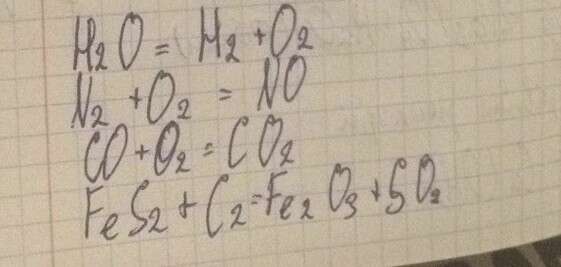 H₂O = H₂ + O₂
N₂ + O₂ = NO
CO + O₂ = CO₂
FeS₂ + C₂ = Fe₂O₃ + SO₂